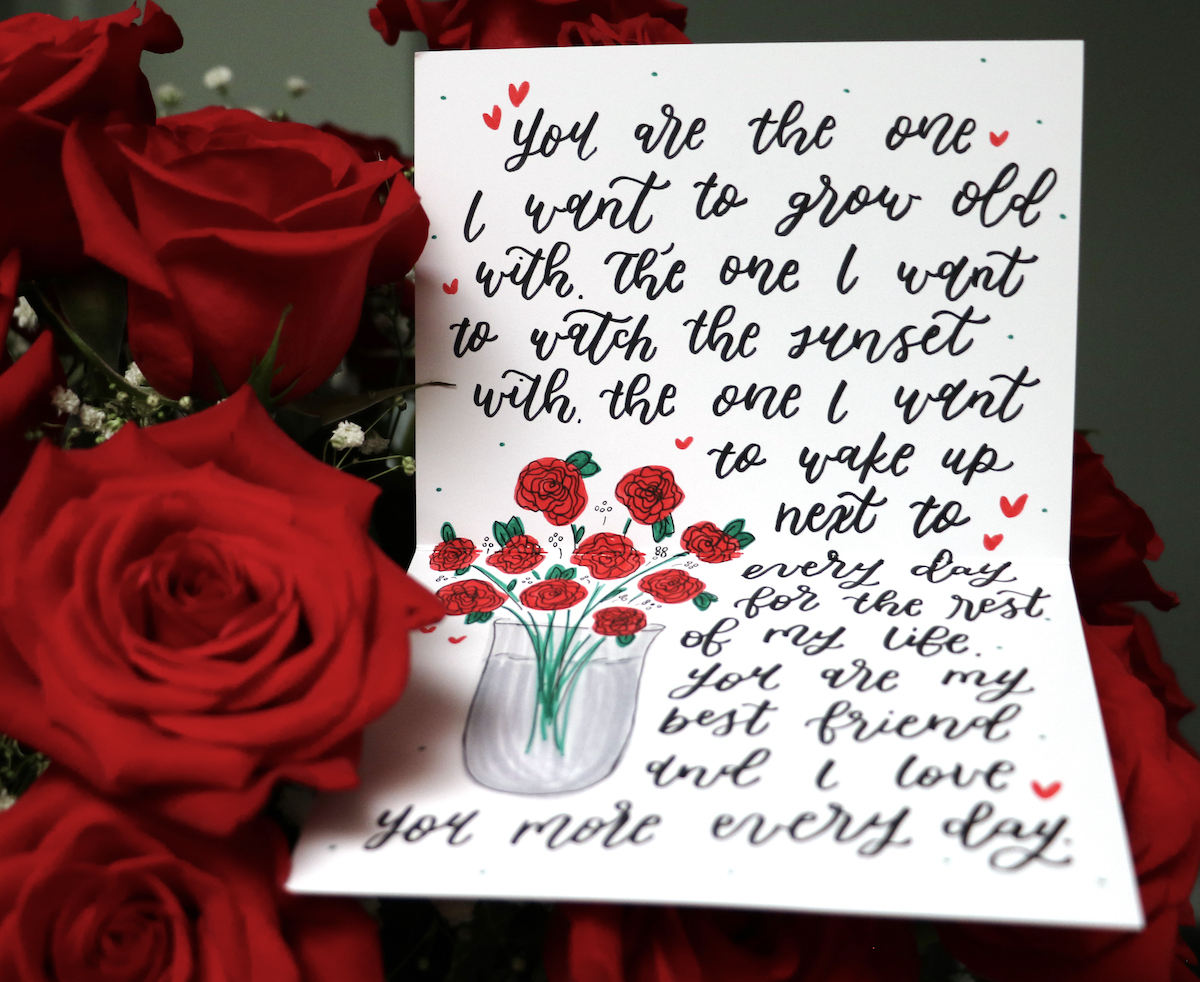 You are the one
I want to grow old
with. The one I want
to watch the sunset
with. the one I want
to wake up
next to
every day
for the rest
of my life.
you are my
best friend
and I love
you more every day.